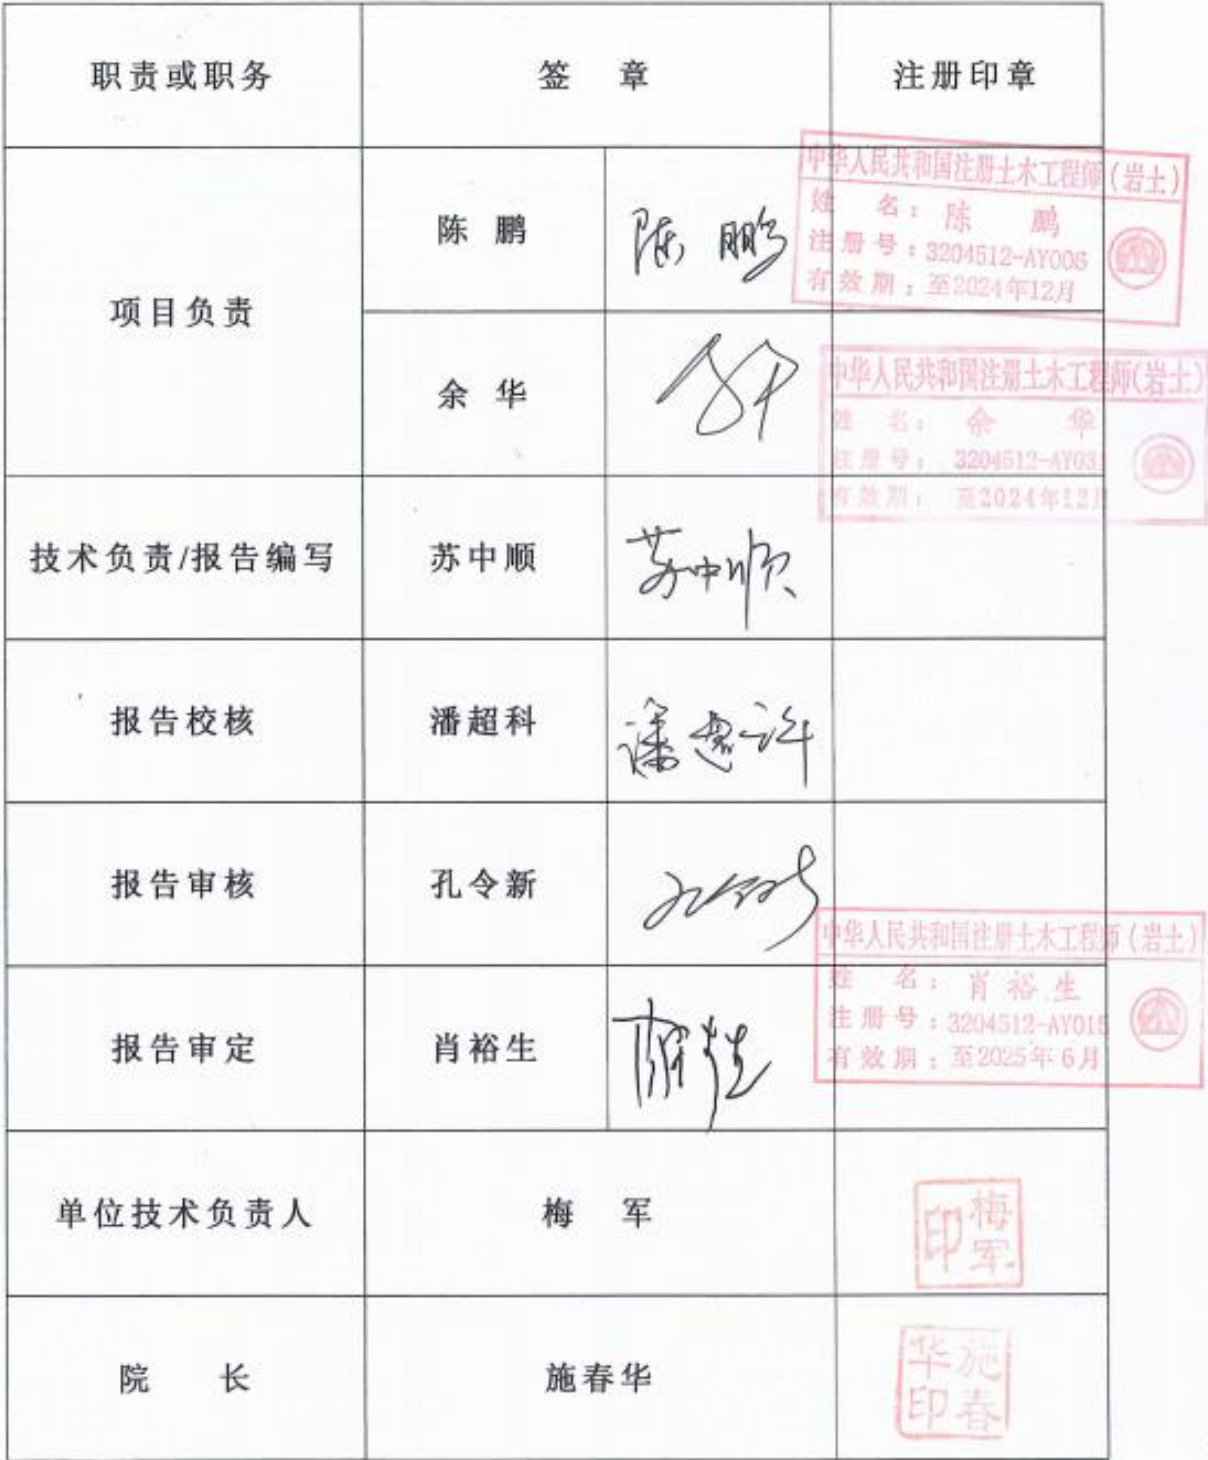 职责或职务 签 章 注册印章
项目负责
陈 鹏 陈鹏
中华人民共和国注册土木工程师(岩土)
姓 名：陈 鹏
注册号：3204512-AY006
有效期：至2024年12月
余 华 余华
中华人民共和国注册土木工程师(岩土)
姓 名：余 华
注册号：3204512-AY031
有效期：至2024年12月
技术负责/报告编写 苏中顺 苏中顺
报告校核 潘超科 潘超科
报告审核 孔令新 孔令新
报告审定 肖裕生 肖裕生
中华人民共和国注册土木工程师(岩土)
姓 名：肖裕生
注册号：3204512-AY015
有效期：至2025年6月
单位技术负责人 梅 军 梅军印
院 长 施春华 施春华印